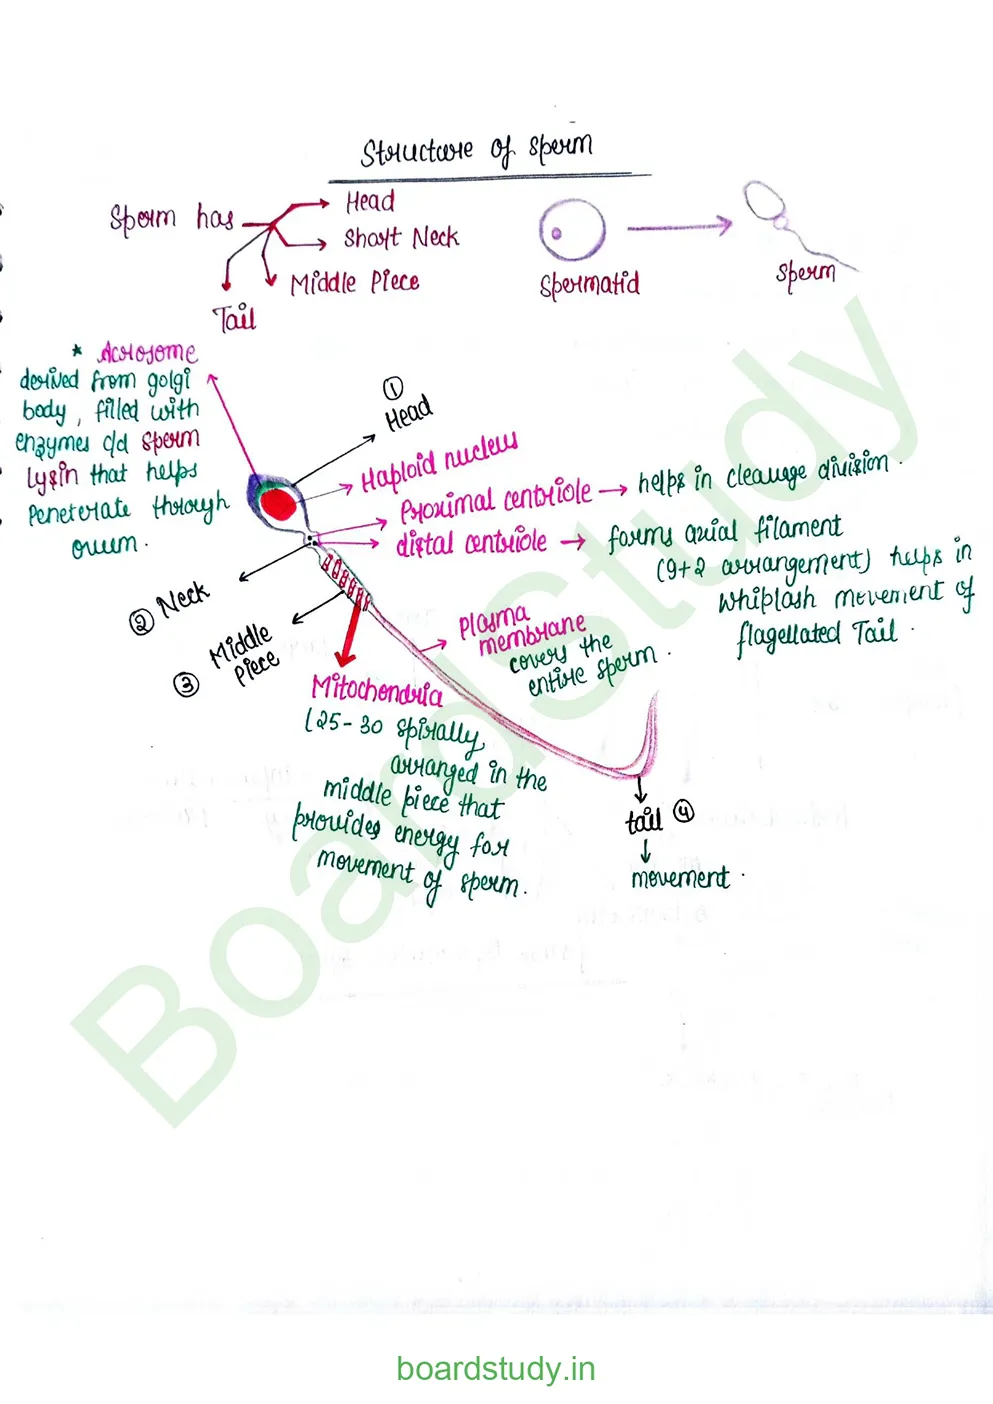 Structure of sperm
Sperm has
Head
Short Neck
Middle Piece
Tail
Spermatid
sperm
* Acrosome
derived from golgi
body, filled with
enzymes c/d sperm
lysin that helps
Peneterate through
ovum.
①
Head
Haploid nucleus
Proximal centriole → helps in cleavage division.
distal centriole → forms axial filament
(9+2 arrangement) helps in
whiplash movement of
flagellated Tail.
② Neck
③ Middle
piece
plasma
membrane
covers the
entire sperm.
Mitochondria
(25-30 spirally,
arranged in the
middle piece that
provides energy for
movement of sperm.
tail ④
↓
movement.
BoardStudy
boardstudy.in